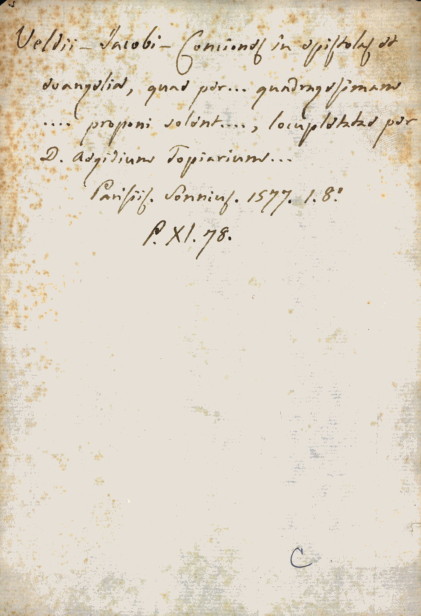 Veldii – Jacobi – Conciones in epistolas et
evangelia, quae per... quadragesimam
.... proponi solent...., locupletatae per
D. Aegidium Topiarium...
Parisiis. Sonnius. 1577. 1. 8°
P. XI. 78.
C